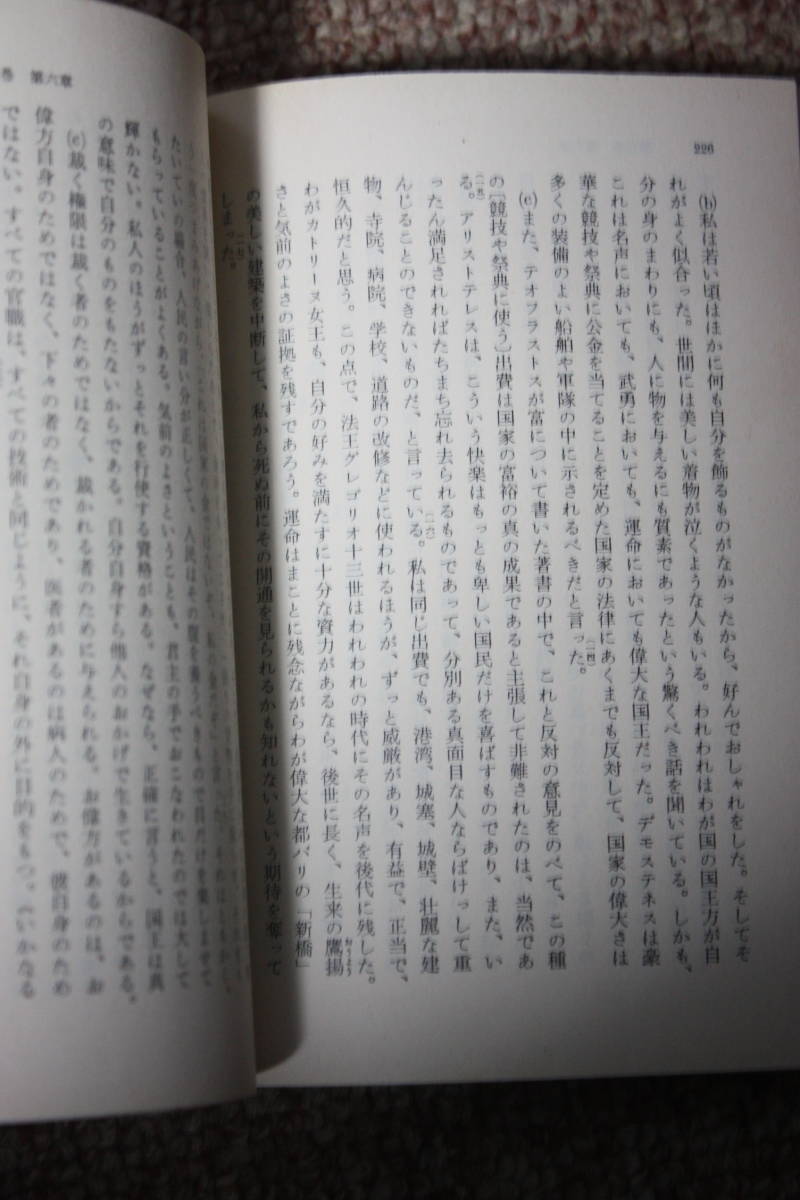 226
(b)私は若い頃はほかに何も自分を飾るものがなかったから、好んでおしゃれをした。そしてそ
れがよく似合った。世間には美しい着物が泣くような人もいる。われわれはわが国の国王方が自
分の身のまわりにも、人に物を与えるにも質素であったという驚くべき話を聞いている。しかも、
これは名声においても、武勇においても、運命においても偉大な国王だった。デモステネスは豪
華な競技や祭典に公金を当てることを定めた国家の法律にあくまでも反対して、国家の偉大さは
多くの装備のよい船舶や軍隊の中に示されるべきだと言った。(一四)
(c)また、テオフラストスが富について書いた著書の中で、これと反対の意見をのべて、この種
の[競技や祭典に使う]出費は国家の富裕の真の成果であると主張して非難されたのは、当然であ
る。(一五)アリストテレスは、こういう快楽はもっとも卑しい国民だけを喜ばすものであり、また、い
ったん満足されればたちまち忘れ去られるものであって、分別ある真面目な人ならばけっして重
んじることのできないものだ、と言っている。(一六)私は同じ出費でも、港湾、城塞、城壁、壮麗な建
物、寺院、病院、学校、道路の改修などに使われるほうが、ずっと威厳があり、有益で、正当で、
恒久的だと思う。この点で、法王グレゴリオ十三世はわれわれの時代にその名声を後代に残した。
わがカトリーヌ女王も、自分の好みを満たすに十分な資力があるなら、後世に長く、生来の鷹揚
さと気前のよさの証拠を残すであろう。運命はまことに残念ながらわが偉大な都パリの「新橋」
の美しい建築を中断して、私から死ぬ前にその開通を見られるかも知れないという期待を奪って
しまった。(一七)
巻 第六章
たいていの場合、人民の言い分が正しくて、人民はその腹を養うべきもので目だけを楽しませて
もらっていることがよくある。気前のよさということも、君主の手でおこなわれたのでは大して
輝かない。私人のほうがずっとそれを行使する資格がある。なぜなら、正確に言うと、国王は真
の意味で自分のものをもたないからである。自分自身すら他人のおかげで生きているからである。
(c)裁く権限は裁く者のためではなく、裁かれる者のために与えられる。お偉方があるのは、お
偉方自身のためではなく、下々の者のためであり、医者があるのは病人のためで、彼自身のため
ではない。すべての官職は、すべての技術と同じように、それ自身の外に目的をもつ。《いかなる